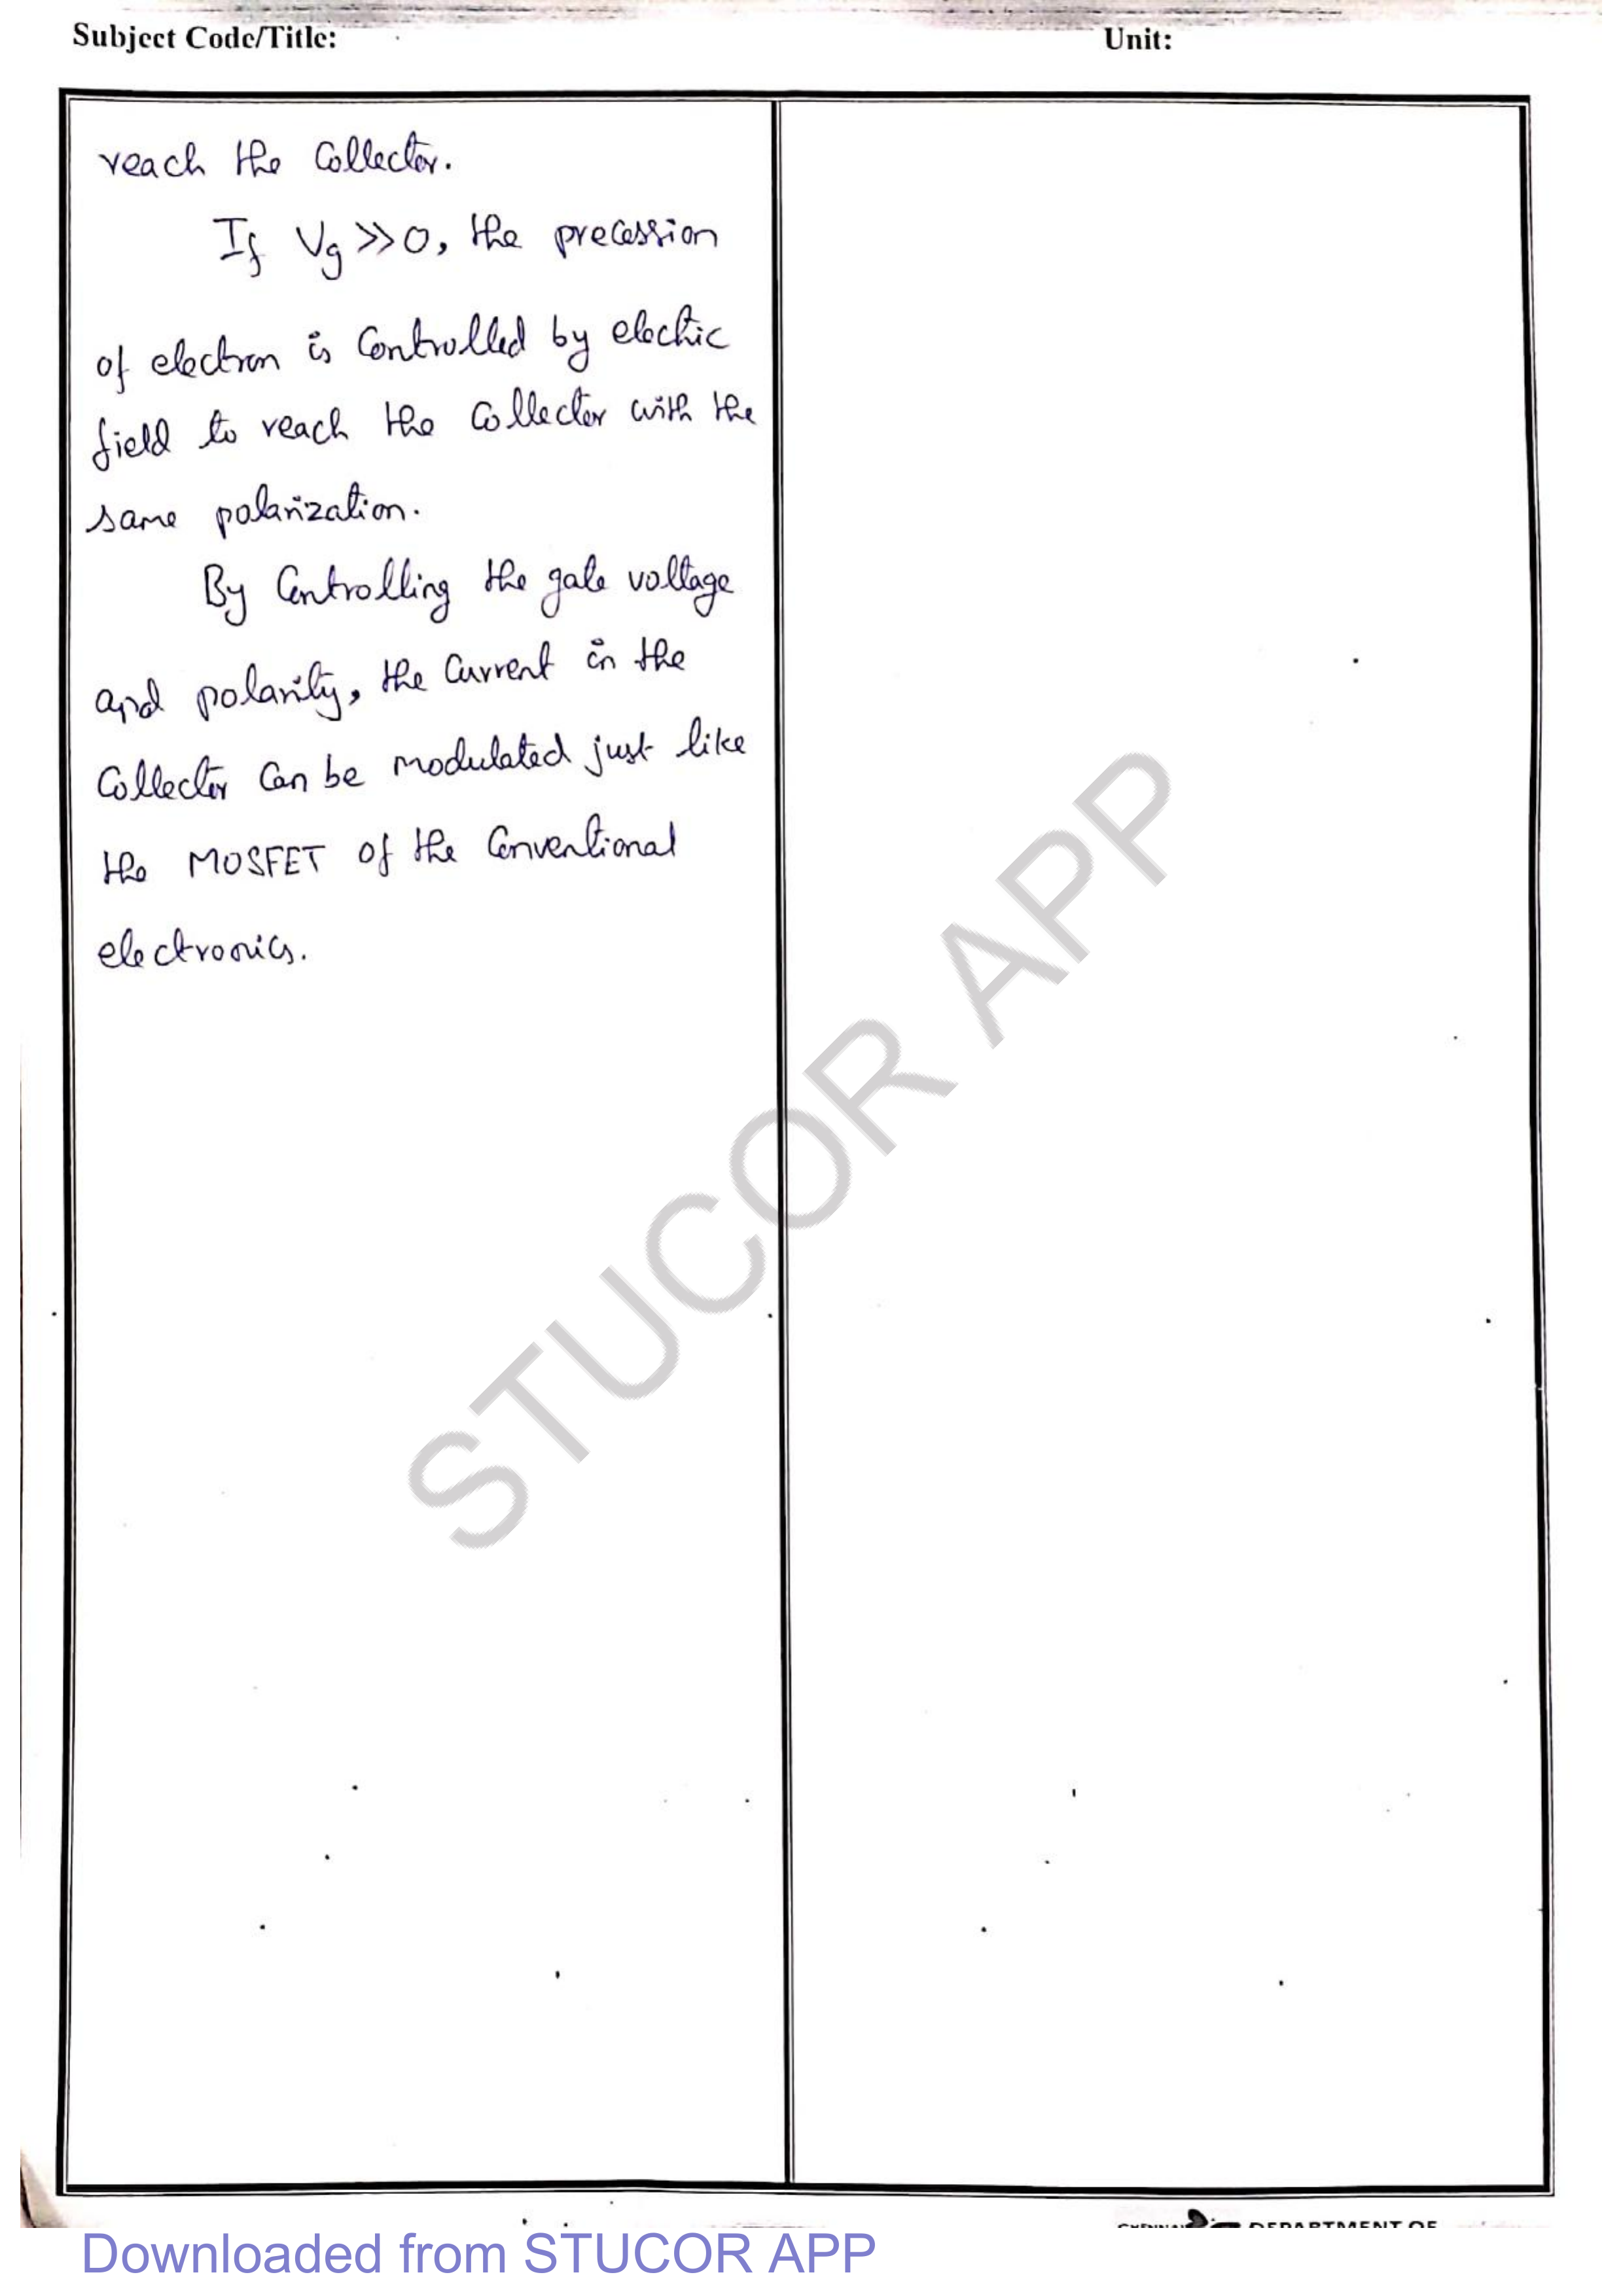 Subject Code/Title:
Unit:
reach the collector.
If Vg >> 0, the precession
of electron is controlled by electric
field to reach the collector with the
same polarization.
By controlling the gate voltage
and polarity, the current in the
collector can be modulated just like
the MOSFET of the conventional
electronics.
STUCOR APP
DEPARTMENT OF
Downloaded from STUCOR APP